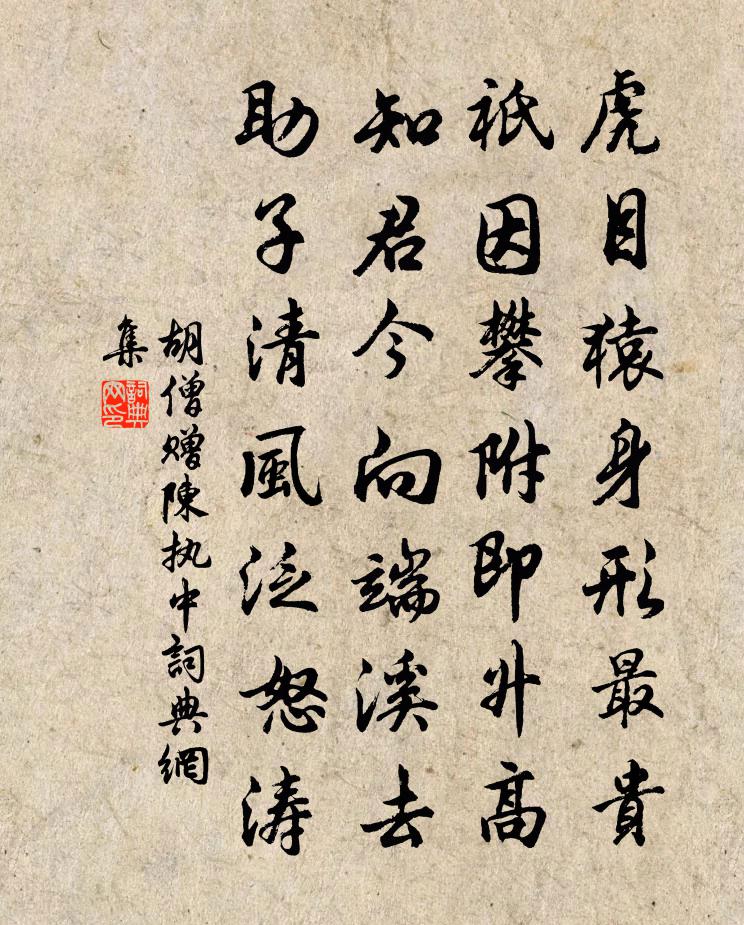 虎目猿身形最貴
祇因攀附即升高
知君今向端溪去
助子清風泛怒涛
胡僧赠陳执中詞典網
集
詞典
网印